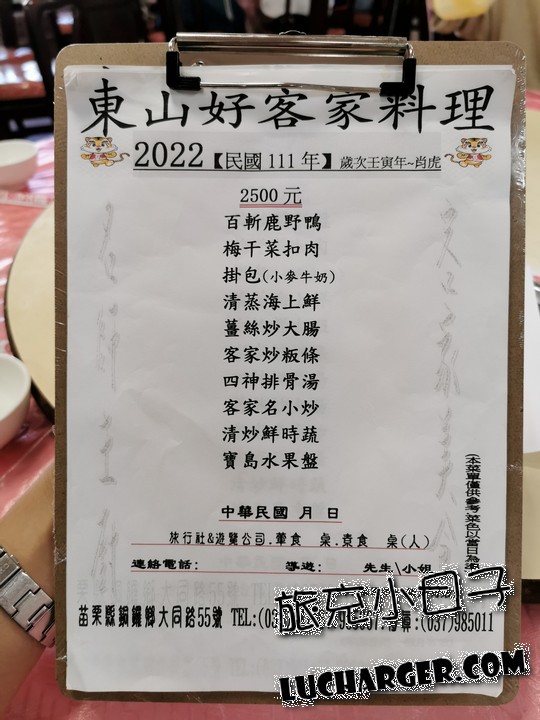 東山好客家料理
2022【民國 111 年】歲次壬寅年~肖虎
2500 元
百斬鹿野鴨
梅干菜扣肉
掛包(小麥牛奶)
清蒸海上鮮
薑絲炒大腸
客家炒粄條
四神排骨湯
客家名小炒
清炒鮮時蔬
寶島水果盤
(本菜單僅供參考,菜色以當日為準)
中華民國 月 日
旅行社&遊覽公司.葷食 桌.素食 桌(人)
連絡電話: 導遊: 先生\小姐
苗栗縣銅鑼鄉大同路55號 TEL:(03 :(037)985011
旅充小日子
LUCHARGER.COM